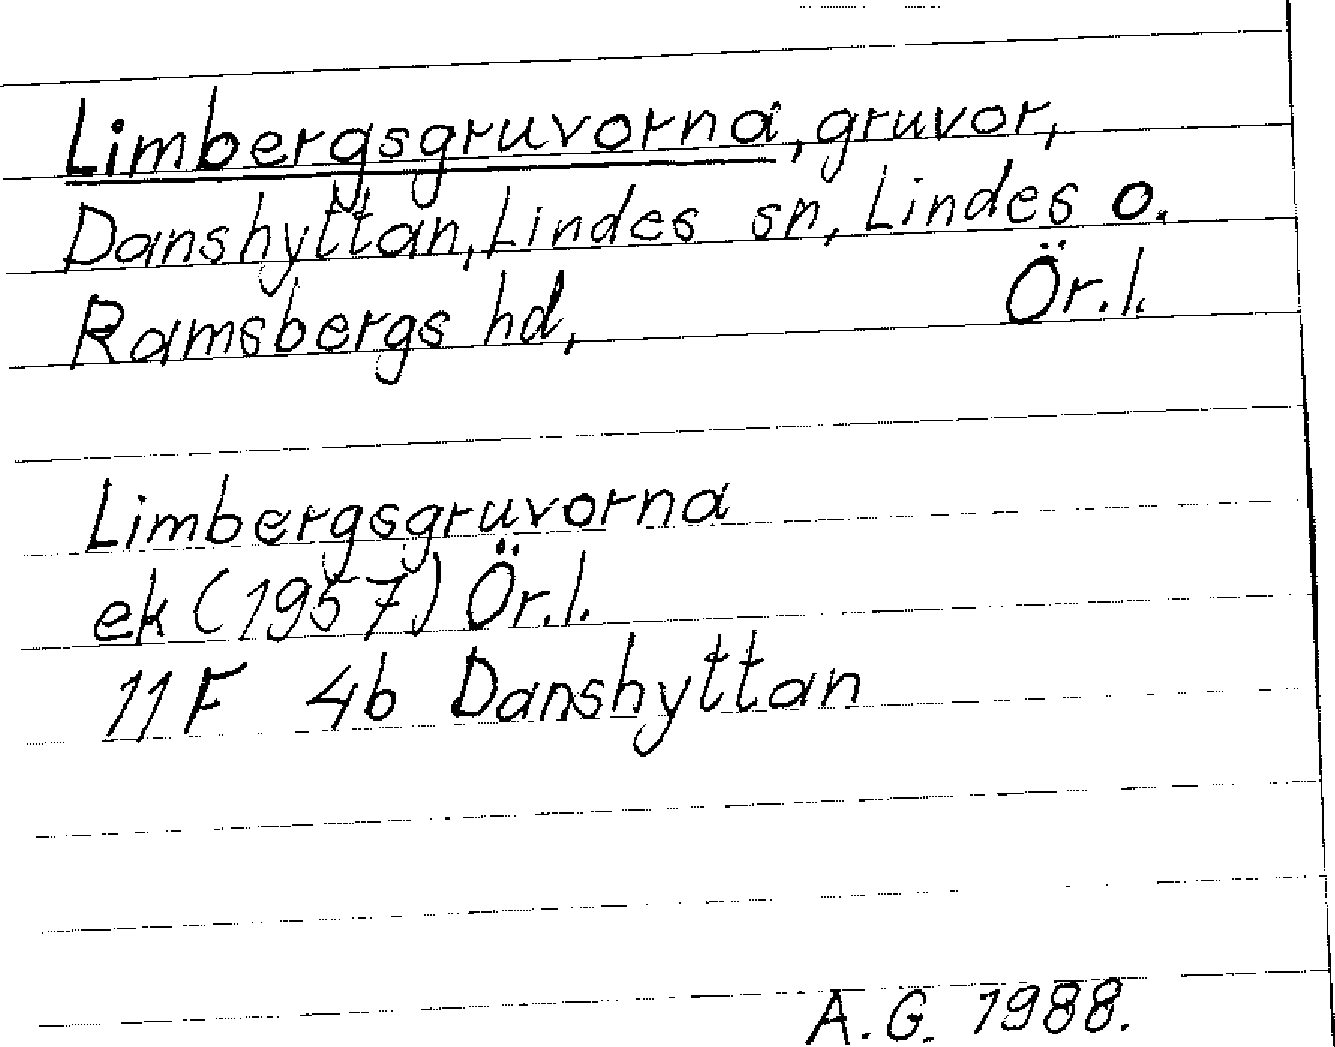 Limbergsgruvorna, gruvor,
Danshyttan, Lindes sn, Lindes o.
Ramsbergs hd, Ör.l.
Limbergsgruvorna
ek (1957) Ör.l.
11F 4b Danshyttan
A.G. 1988.